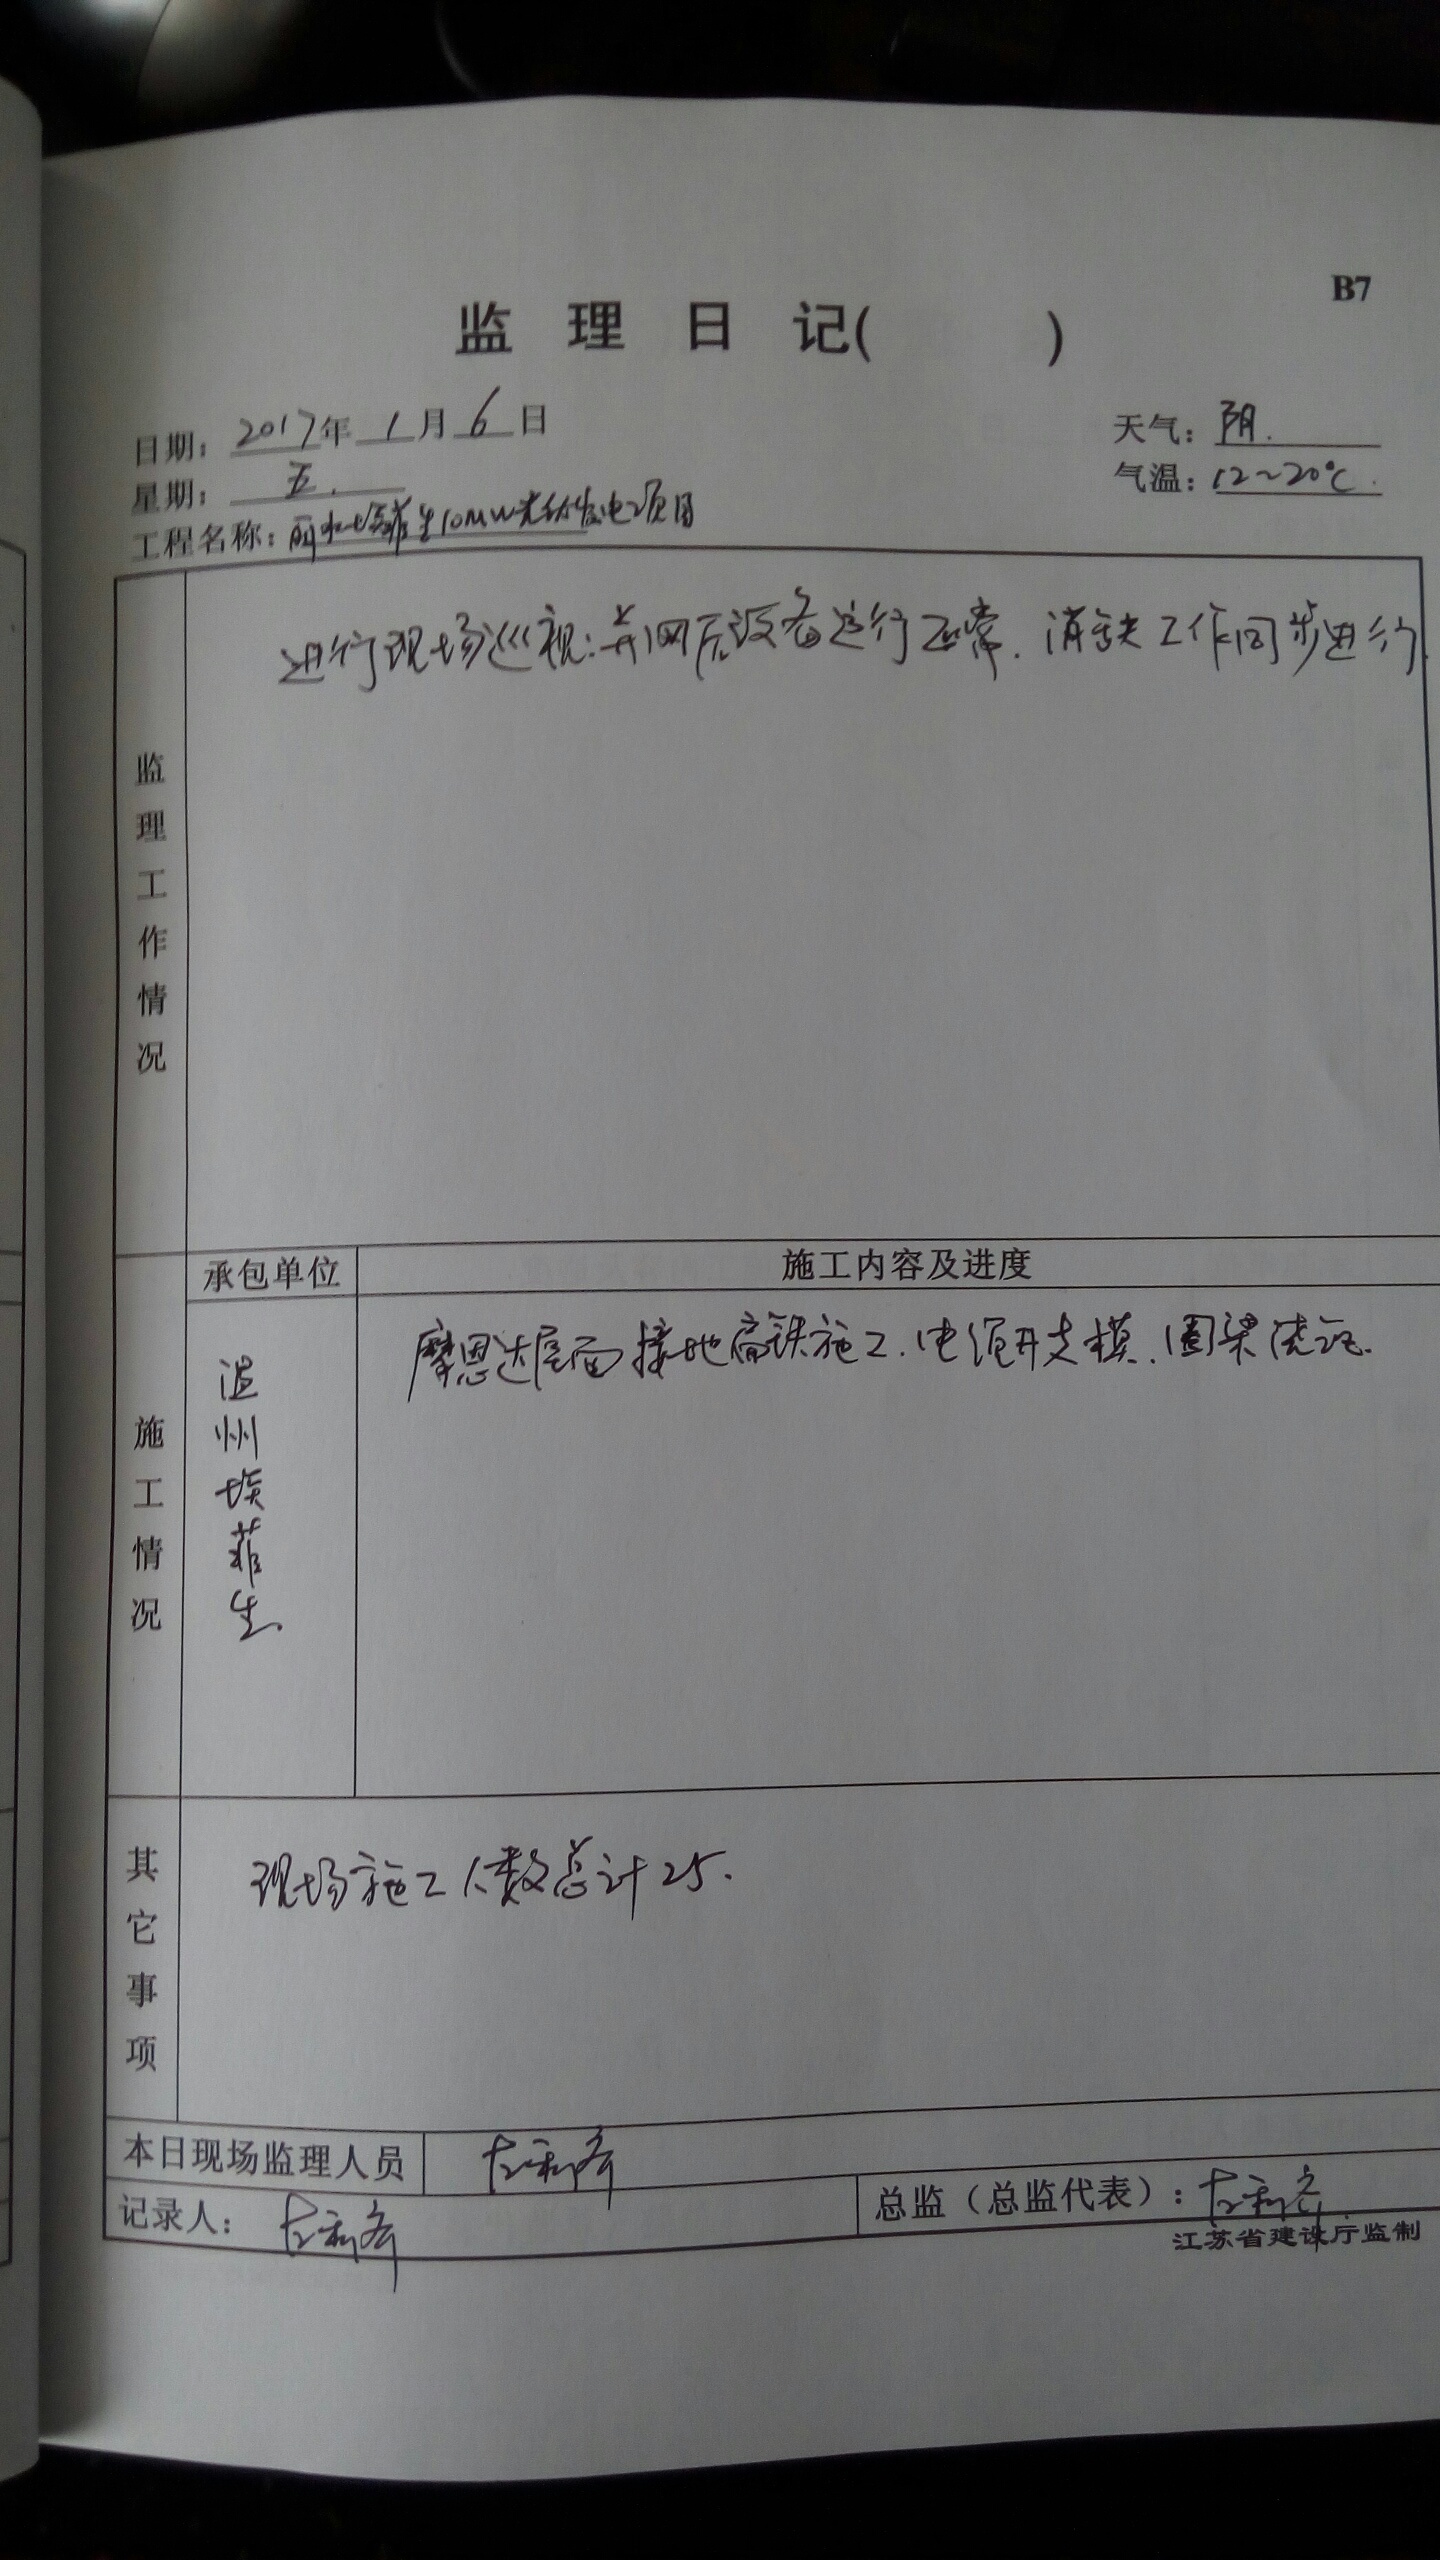 B7
监 理 日 记( )
日期: 2017年 1月 6日
天气: 阴.
星期: 五.
气温: 12~20℃.
工程名称: 丽水埃菲生10MW光伏发电项目
监理工作情况
进行现场巡视: 并网后设备运行正常. 消缺工作同步进行.
施工情况
承包单位
施工内容及进度
温州埃菲生.
摩恩达屋面接地扁铁施工. 电缆井支模. 圈梁浇
其它事项
现场施工人数总计25.
本日现场监理人员
记录人:
总监(总监代表):
江苏省建设厅监制